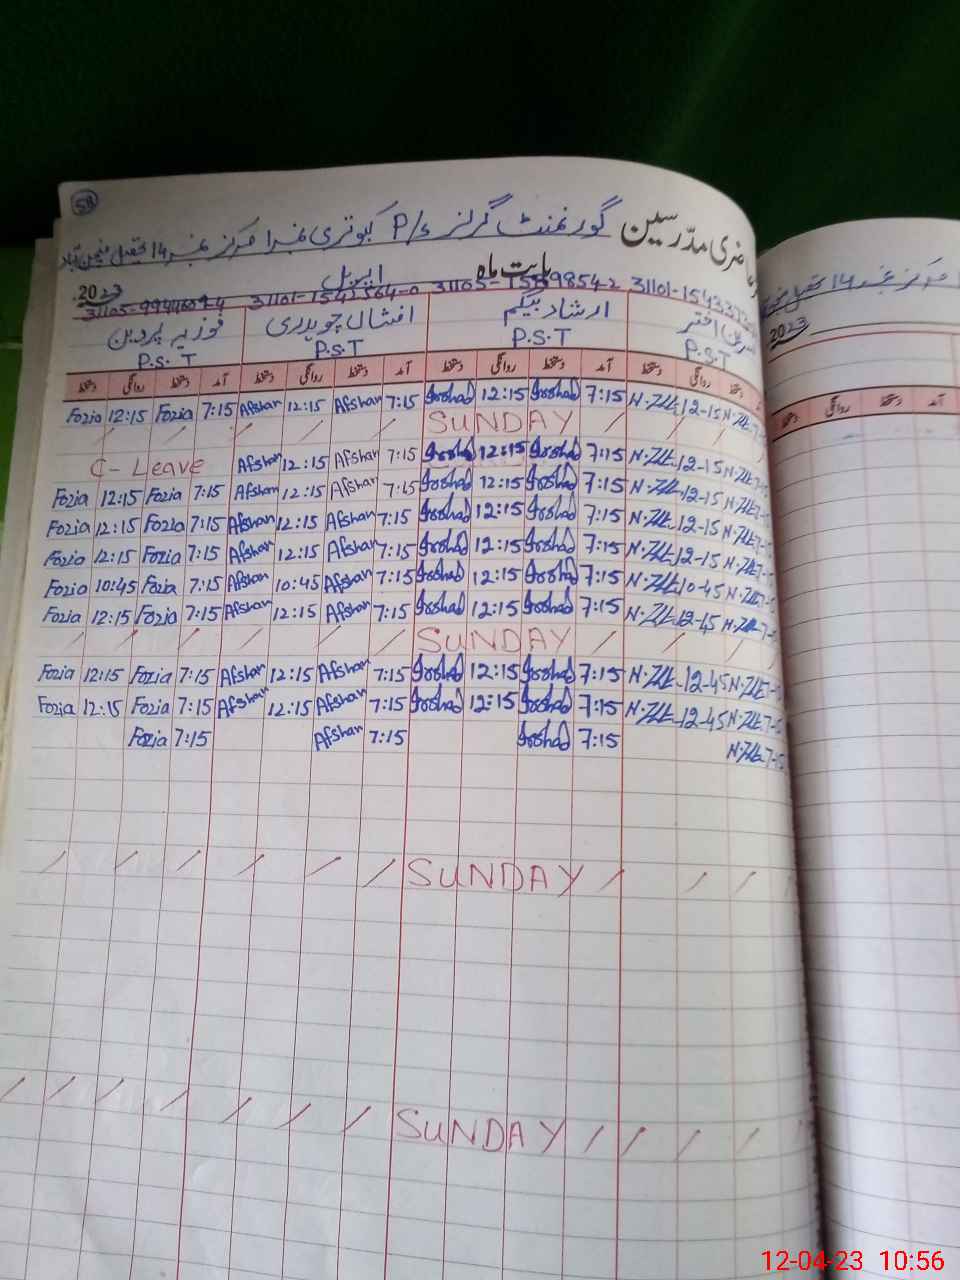 58
حاضری مدرسین گورنمنٹ گرلز P/s کبوتری نمبر1 مرکز نمبر 14 تحصیل منچن آباد
بابت ماہ اپریل 2023
31105-9944609-4 31101-1542564-0 31105- 9854-2 31101-154337
فوزیہ پروین افشاں چوہدری ارشاد بیگم نسرین اختر
P.S.T P.S.T P.S.T P.S.T
دستخط روانگی دستخط آمد دستخط روانگی دستخط آمد دستخط روانگی دستخط آمد دستخط روانگی دستخط
Fozia 12:15 Fozia 7:15 Afshan 12:15 Afshan 7:15 Irshad 12:15 Irshad 7:15 12-15
/ / / / / / SUNDAY / / /
C- Leave Afshan 12:15 Afshan 7:15 Irshad 12:15 Irshad 7:15 12-15
Fozia 12:15 Fozia 7:15 Afshan 12:15 Afshan 7:15 Irshad 12:15 Irshad 7:15 12-15
Fozia 12:15 Fozia 7:15 Afshan 12:15 Afshan 7:15 Irshad 12:15 Irshad 7:15 12-15
Fozia 12:15 Fozia 7:15 Afshan 12:15 Afshan 7:15 Irshad 12:15 Irshad 7:15 12-15
Fozia 10:45 Fozia 7:15 Afshan 10:45 Afshan 7:15 Irshad 12:15 Irshad 7:15 10-45
Fozia 12:15 Fozia 7:15 Afshan 12:15 Afshan 7:15 Irshad 12:15 Irshad 7:15 12-45
/ / / / / / SUNDAY / / /
Fozia 12:15 Fozia 7:15 Afshan 12:15 Afshan 7:15 Irshad 12:15 Irshad 7:15 12-45
Fozia 12:15 Fozia 7:15 Afshan 12:15 Afshan 7:15 Irshad 12:15 Irshad 7:15 12-45
Fozia 7:15 Afshan 7:15 Irshad 7:15 7-15
/ / / / / / SUNDAY / / /
/ / / / / / / SUNDAY / / / /
2023
دستخط روانگی دستخط آمد
12-04-23 10:56